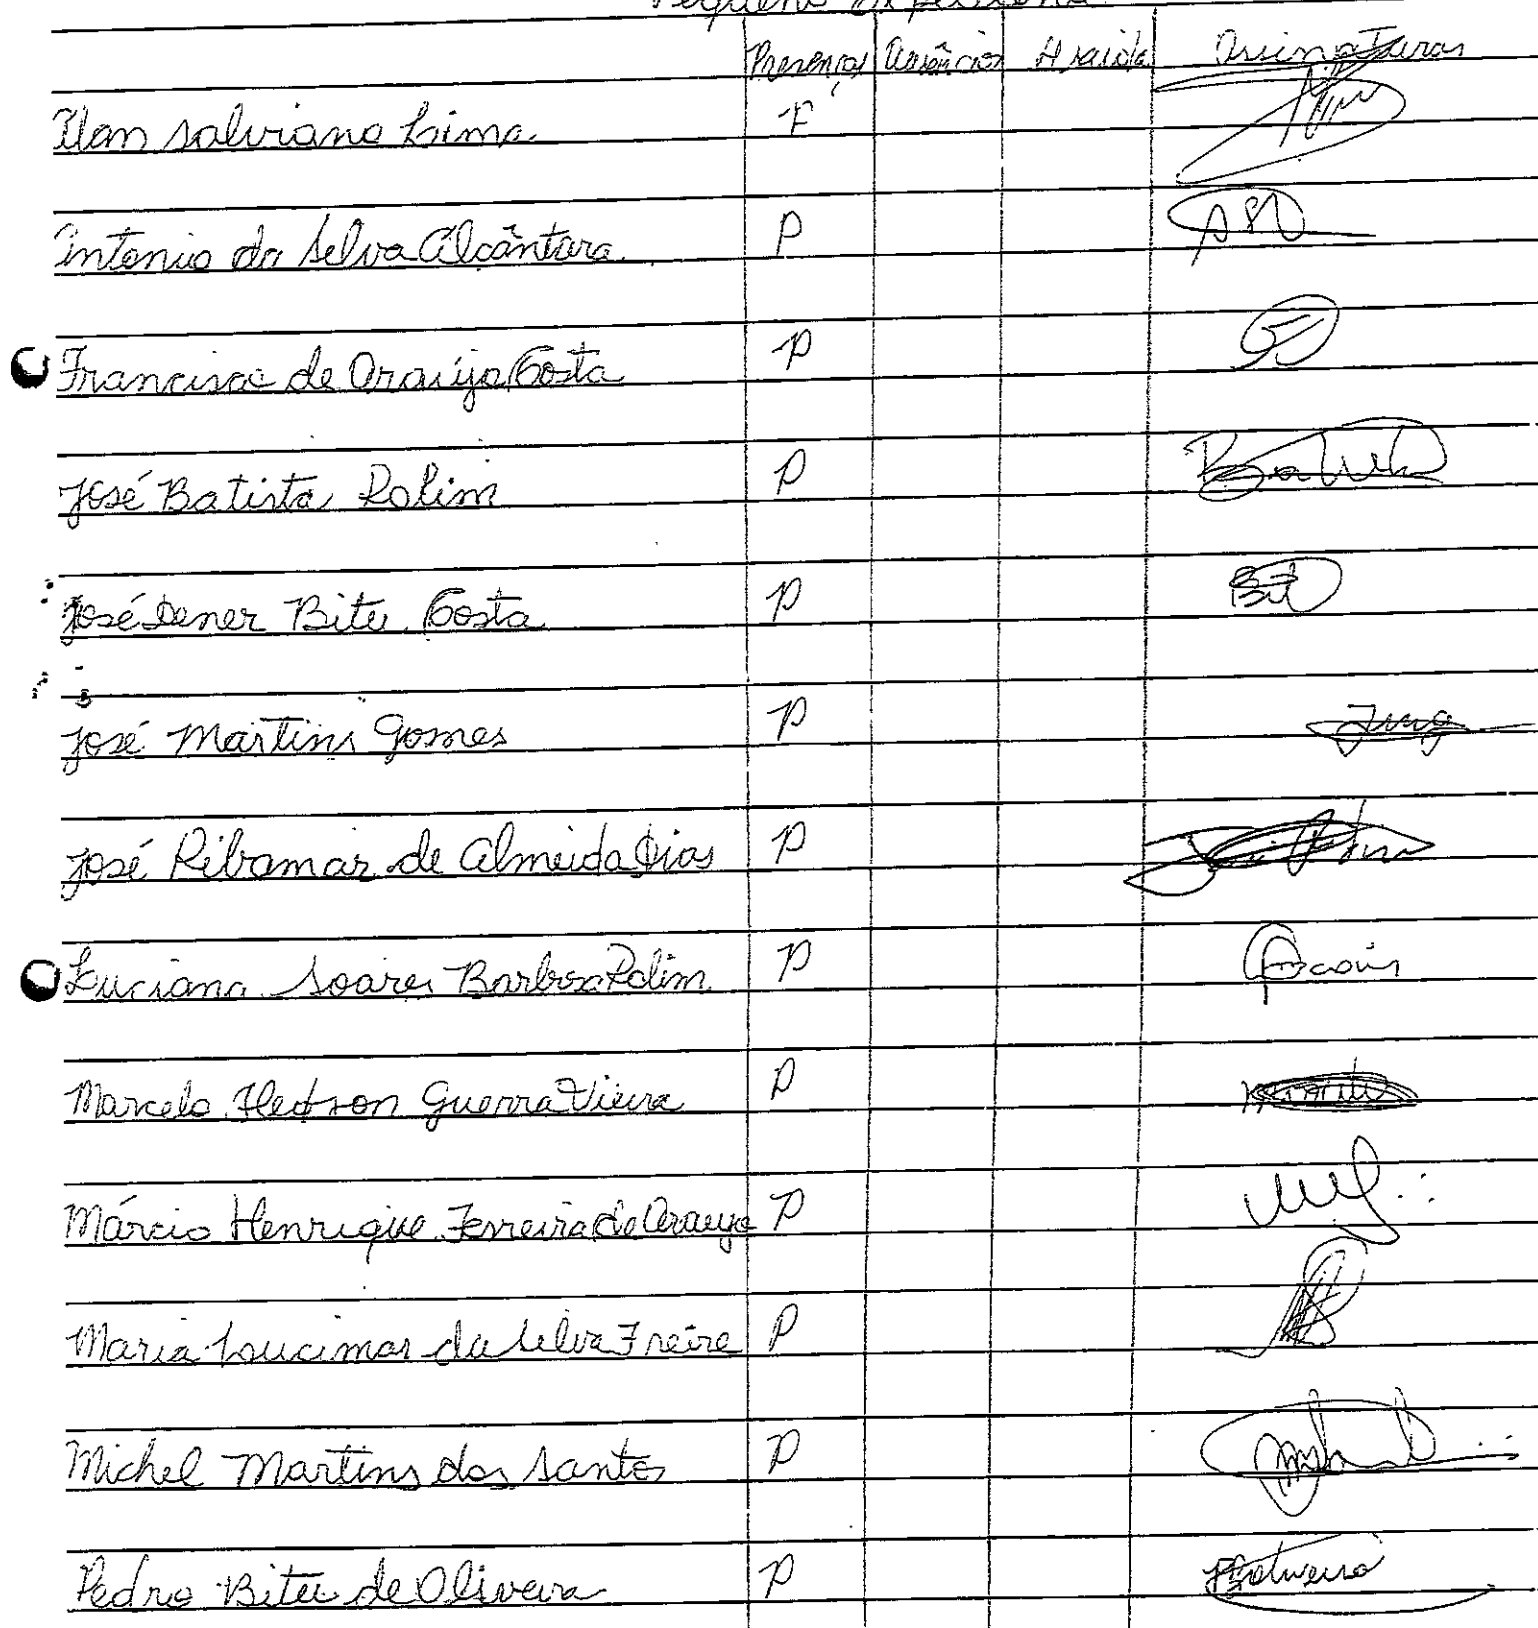 Pequeno Expediente
Presenças Ausências H saída Assinaturas
Ilan Salviano Lima F
Antonio da Silva Alcântara P
Francisco de Araújo Costa P
José Batista Rolim P
José Dener Bitu Costa P
José Martins Gomes P
José Ribamar de Almeida Dias P
Luciana Soares Barbosa Rolim P
Marcelo Guerra Vieira P
Márcio Henrique Ferreira de Araujo P
Maria Lucimar da Silva Freire P
Michel Martins dos Santos P
Pedro Bitu de Oliveira P